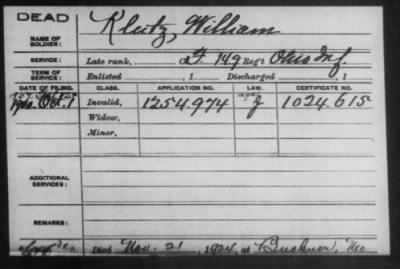 DEAD
NAME OF SOLDIER: Klutz, William
SERVICE: Late rank, Co. F. 149 Reg't Ohio Inf.
TERM OF SERVICE: Enlisted , 1 Discharged , 1
DATE OF FILING. CLASS. APPLICATION NO. LAW. CERTIFICATE NO.
Oct. 1 Invalid, 1254.974 1024.615
Widow,
Minor,
ADDITIONAL SERVICES:
REMARKS:
Died Nov. 21, 1924, at Buckner, Mo.